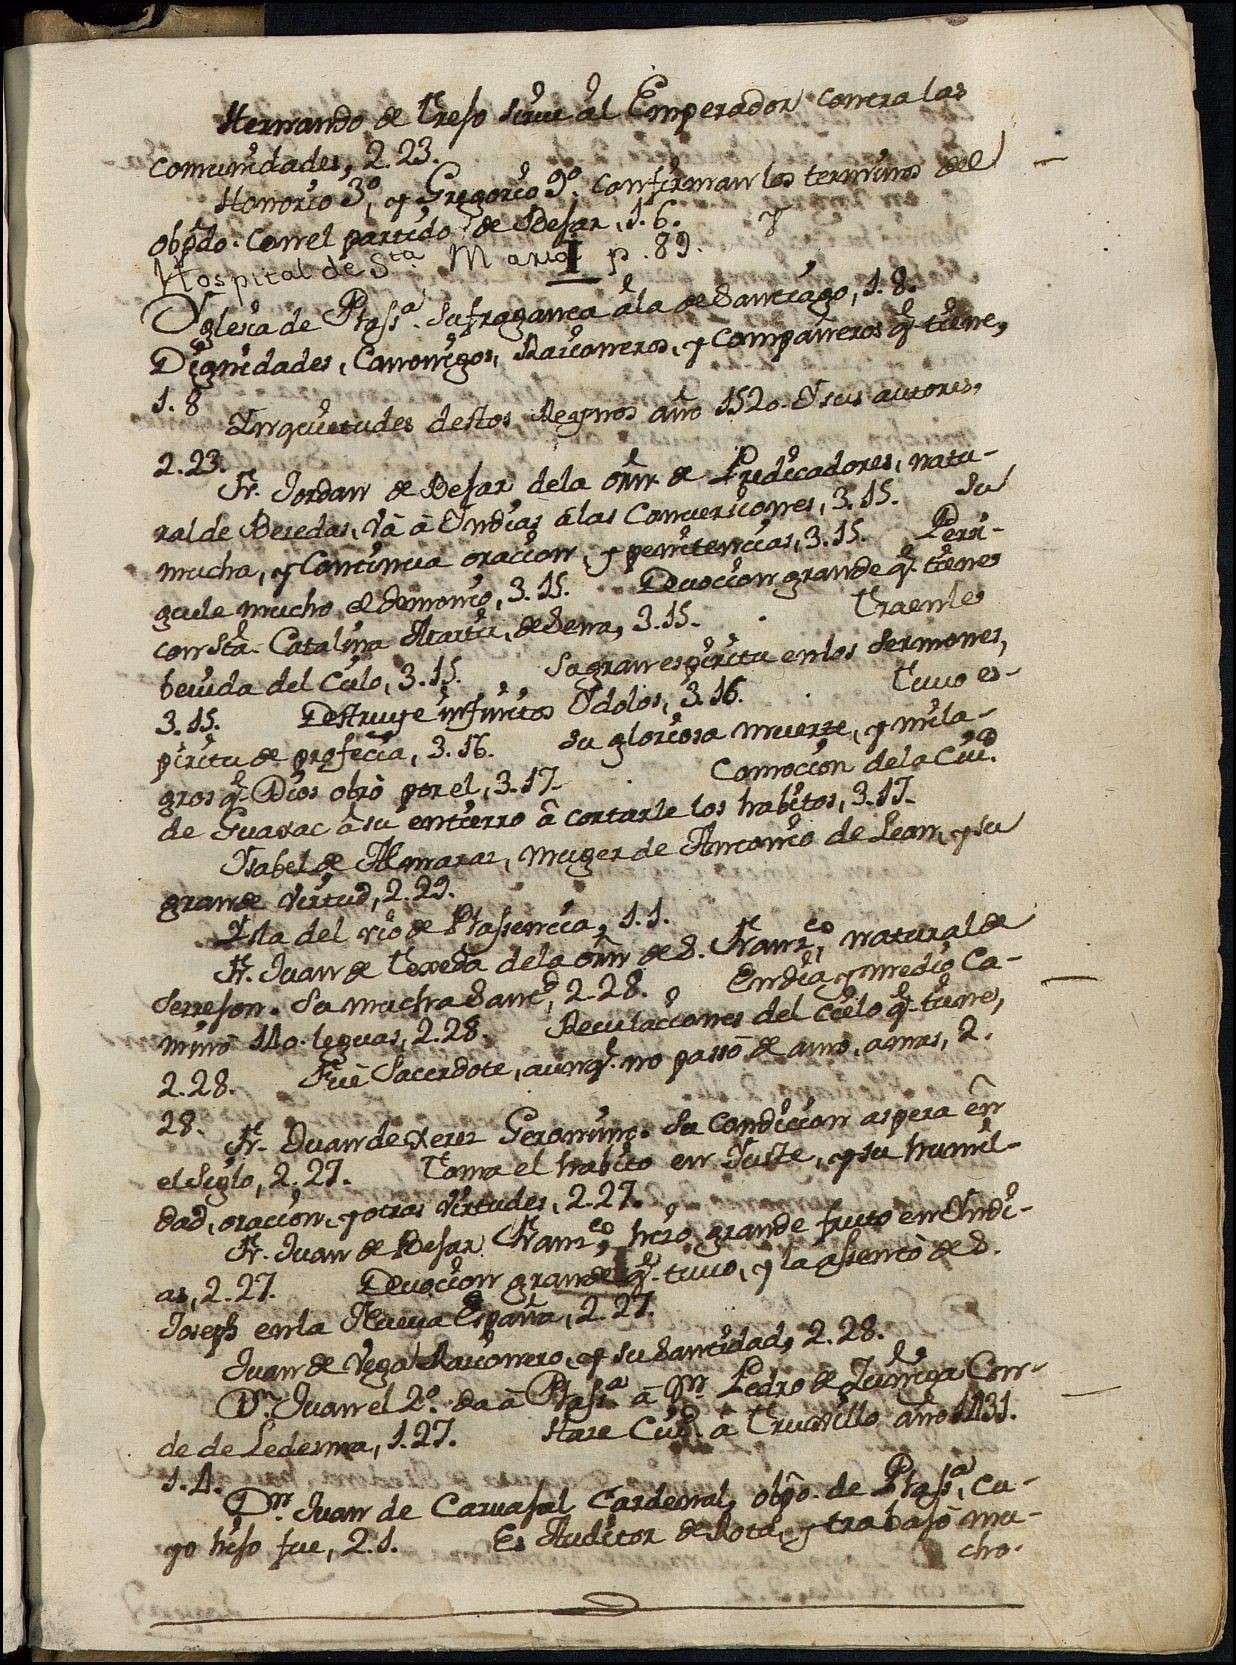 Hernando de Trejo sirve al Emperador contra las
comunidades, 2.23.
Honorio 3º, y Gregorio 9º. confirman los terminos del
obpdo. con el partido de Bejar, 1.6.
Hospital de Sta Maria p. 89.
I
Yglesia de Plasa. sufraganea a la de Santiago, 1.8.
Dignidades, Canonigos, Racioneros, y Compañeros q. tiene,
1.8
Ynquietudes destos Reynos año 1520. Y sus autores,
2.23.
Fr. Jordan de Bejar de la orn. de Predicadores, natu-
ral de Becedas, và à Yndias à las Conversiones, 3.15. Su
mucha, y continua oracion, y penitencias, 3.15. Persi-
guele mucho el demonio, 3.15. Devocion grande q. tiene
con Sta. Catalina Martir, de Sena, 3.15. Traenle
bevida del Cielo, 3.15. Su gran espiritu en los Sermones,
3.15. Destruye infinitos Ydolos, 3.16. Tuvo es-
piritu de profecia, 3.16. Su gloriosa muerte, y mila-
gros q. Dios obrò por el, 3.17. Comocion de la Ciud.
de Guaxac à su entierro à cortarle los habitos, 3.17.
Ysabel de Almaraz, muger de Antonio de Leon, y su
grande virtud, 2.29.
Ysla del rio de Plasencia, 1.1.
Fr. Juan de Texeda de la orn de S. Franco, natural de
Serrejon. Su mucha Santd, 2.28. En dia y medio Ca-
minò 140 leguas, 2.28. Revelaciones del Cielo q. tiene,
2.28. Fuè Sacerdote, aunq. no passò de amo, amas, 2.
28.
Fr. Juan de Xerez Geronimo. Su condicion aspera en
el Siglo, 2.27. Toma el habito en Yuste, y su humil-
dad, oracion, y otras virtudes, 2.27.
Fr. Juan de Bejar Franco, hizo grande fruto en Yndi-
as, 2.27. Devocion grande q. tuvo, y la assentò de S.
Joseph en la Nueva España, 2.27.
Juan de Vega Racionero, y su Santidad, 2.28.
Dn. Juan el 2º. da à Plasa. à Dn Pedro de Zuñiga Con-
de de Ledesma, 1.27. Haze Ciud. à Truxillo año 1431.
1.4.
Dn. Juan de Carvajal Cardenal, obpo. de Plasa, Cu-
yo hijo fue, 2.1. Es Auditor de Rota, y trabajò mu-
cho.